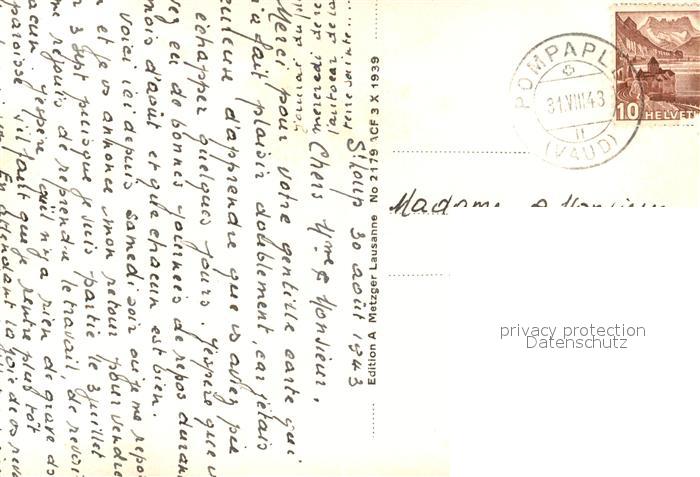 St Loup 30 août 1943
Chers Mme & Monsieur,
Merci pour votre gentille carte qui
a fait plaisir doublement, car j'étais
d'apprendre que vs aviez pu
échapper quelques jours. J'espère que v
eu de bonnes journées de repos durant
mois d'août et que chacun est bien.
voici ici depuis samedi soir où je me repose
et je vs annonce mon retour pour vendredi
3 Sept puisque je suis partie le 3 juillet
me réjouis de reprendre le travail, de revoir
chacun j'espère qu'il n'y a rien de grave ds
paroisse s'il faut que je rentre plus tôt
En attendant la joie de vs revoir
mercredi
l'autocar de la
Edition A Metzger Lausanne No 2179 ACF 3 X 1939
POMPAPLES
31.VIII.43
(VAUD)
10 HELVETIA
Madame & Monsieur
privacy protection
Datenschutz